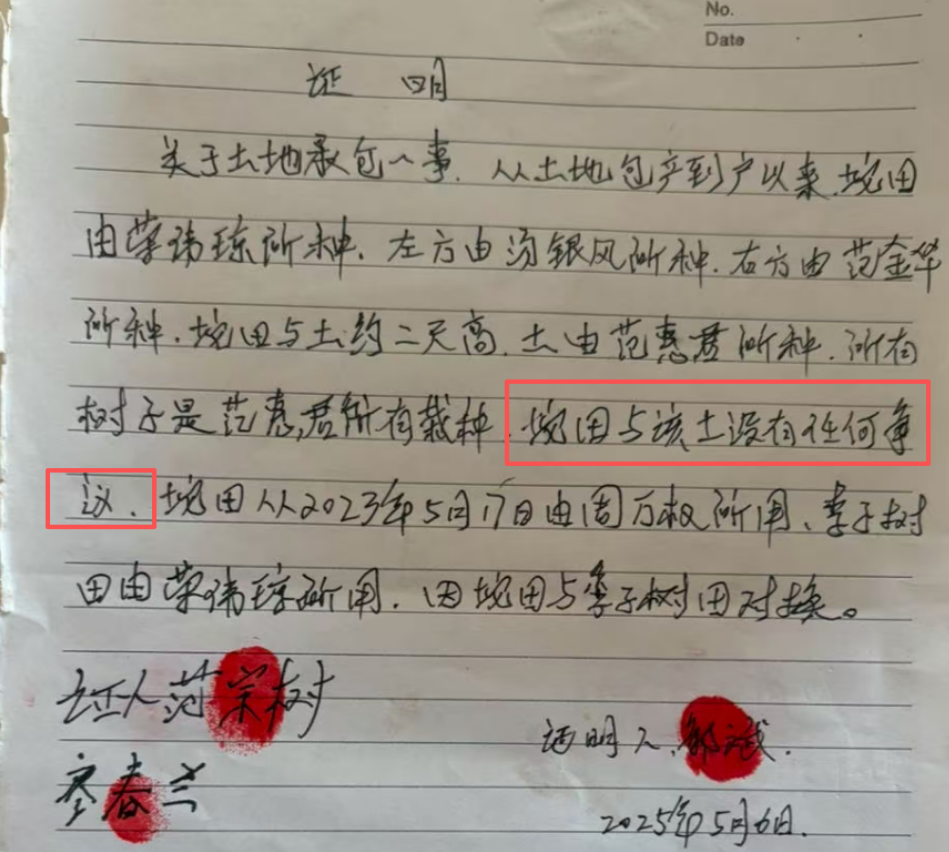 No.
Date
证 明
关于土地承包一事. 从土地包产到户以来. 塆田
由荣祎琼所种. 左方由汤银风所种. 右方由范金华
所种. 塆田与土约二天高. 土由范惠君所种. 所有
树子是范惠君所有栽种. 塆田与该土没有任何争
议. 塆田从2023年5月17日由周万权所用、李子树
田由荣祎琼所用. 因塆田与李子树田对换。
证人范宗树
证明人
廖春兰
2025年5月6日.